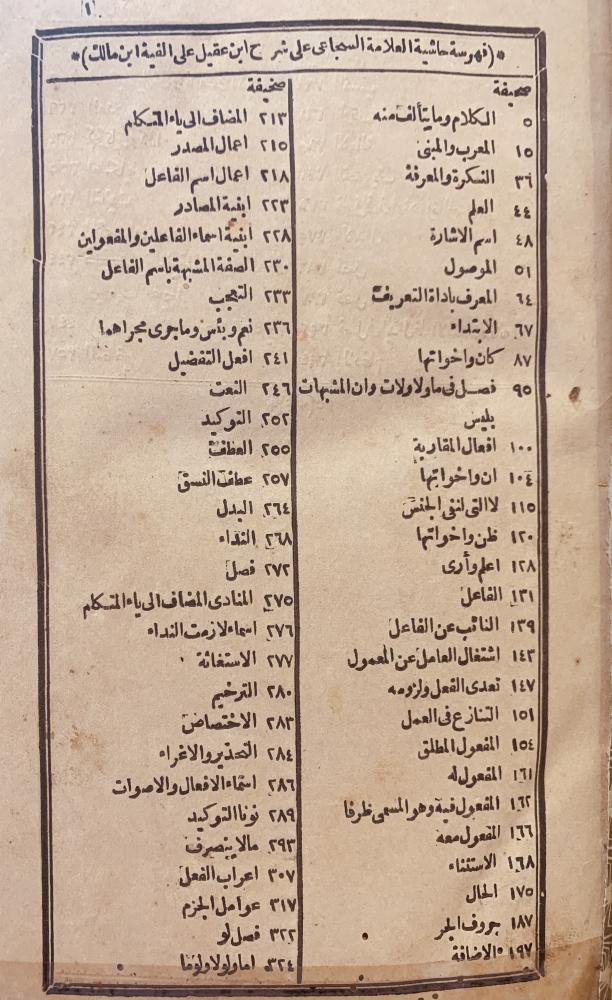 *(فهرسة حاشية العلامة السجاعى على شرح ابن عقيل على الفية ابن مالك)*
صحيفة
٥ الكلام وما يتألف منه
١٥ المعرب والمبنى
٣٦ النكرة والمعرفة
٤٤ العلم
٤٨ اسم الاشارة
٥١ الموصول
٦٤ المعرف باداة التعريف
٦٧ الابتداء
٨٧ كان واخواتها
٩٥ فصل فى ما ولا ولات وان المشبهات
بليس
١٠٠ افعال المقاربة
١٠٤ ان واخواتها
١١٥ لا التى لنفى الجنس
١٢٠ ظن واخواتها
١٢٨ اعلم وأرى
١٣١ الفاعل
١٣٩ النائب عن الفاعل
١٤٣ اشتغال العامل عن المعمول
١٤٧ تعدى الفعل ولزومه
١٥١ التنازع فى العمل
١٥٤ المفعول المطلق
١٦١ المفعول له
١٦٢ المفعول فيه وهو المسمى ظرفا
١٦٦ المفعول معه
١٦٨ الاستثناء
١٧٥ الحال
١٨٧ حروف الجر
١٩٧ الاضافة
صحيفة
٢١٣ المضاف الى ياء المتكلم
٢١٥ اعمال المصدر
٢١٨ اعمال اسم الفاعل
٢٢٣ ابنية المصادر
٢٢٨ أبنية اسماء الفاعلين والمفعولين
٢٣٠ الصفة المشبهة باسم الفاعل
٢٣٣ التعجب
٢٣٦ نعم وبئس وما جرى مجراهما
٢٤١ افعل التفضيل
٢٤٦ النعت
٢٥٢ التوكيد
٢٥٥ العطف
٢٥٧ عطف النسق
٢٦٤ البدل
٢٦٨ النداء
٢٧٢ فصل
٢٧٥ المنادى المضاف الى ياء المتكلم
٢٧٦ اسماء لازمت النداء
٢٧٧ الاستغاثة
٢٨٠ الترخيم
٢٨٣ الاختصاص
٢٨٤ التحذير والاغراء
٢٨٦ اسماء الافعال والاصوات
٢٨٩ نونا التوكيد
٢٩٣ مالا ينصرف
٣٠٧ اعراب الفعل
٣١٧ عوامل الجزم
٣٢٢ فصل لو
٣٢٤ اما ولولا ولوما